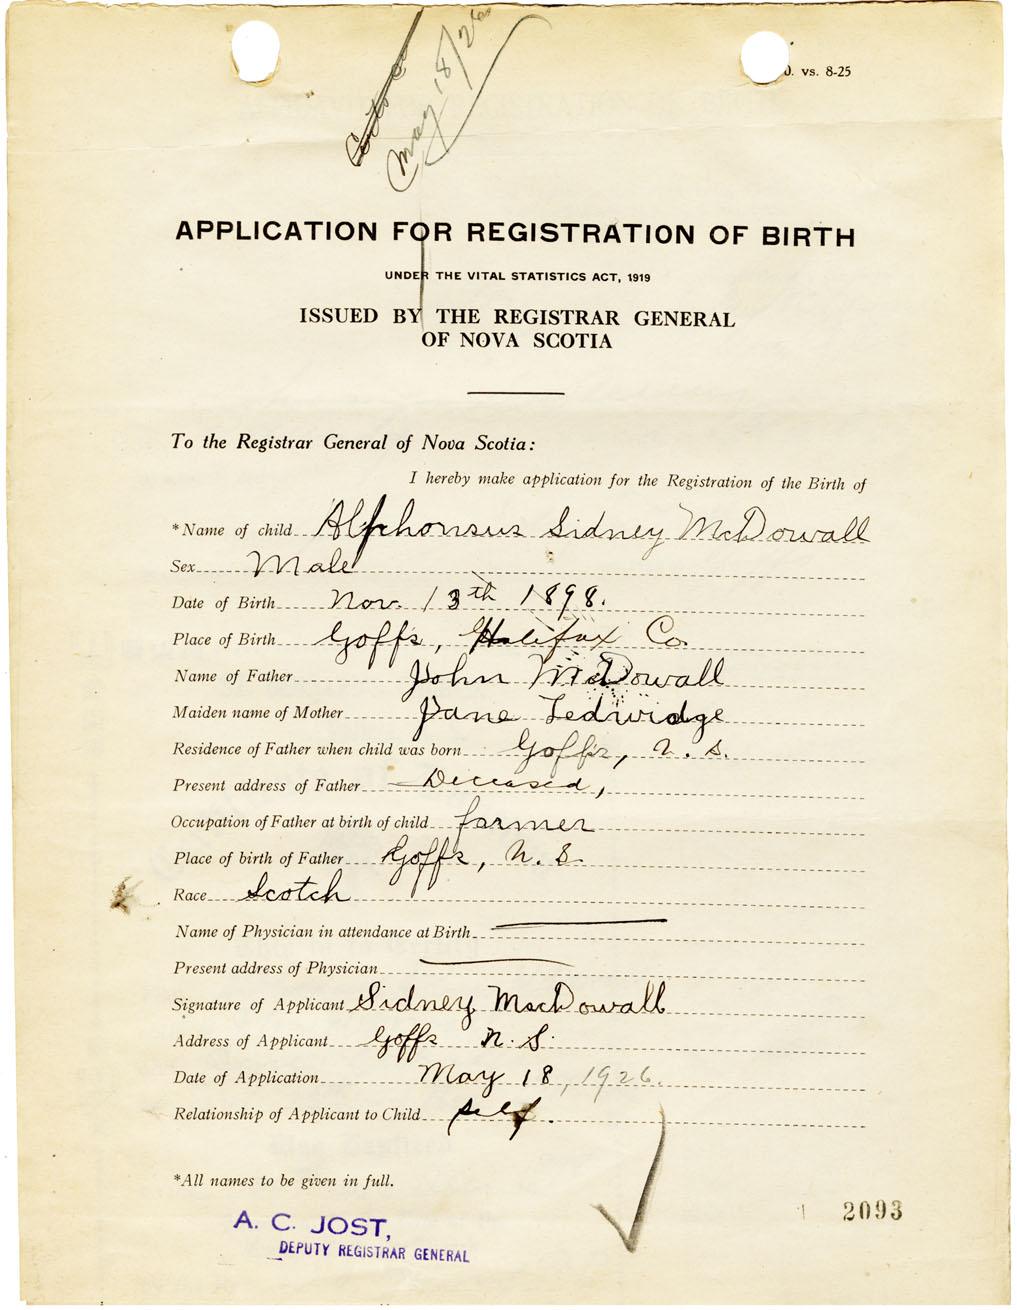 May 18/26
0. vs. 8-25
APPLICATION FOR REGISTRATION OF BIRTH
UNDER THE VITAL STATISTICS ACT, 1919
ISSUED BY THE REGISTRAR GENERAL
OF NOVA SCOTIA
To the Registrar General of Nova Scotia:
I hereby make application for the Registration of the Birth of
*Name of child Alphonsus Sidney McDowall
Sex Male
Date of Birth Nov. 13th 1898.
Place of Birth Goffs, Halifax Co.
Name of Father John McDowall
Maiden name of Mother Jane Ledwidge
Residence of Father when child was born Goffs, N. S.
Present address of Father Deceased,
Occupation of Father at birth of child farmer
Place of birth of Father Goffs, N. S.
Race Scotch
Name of Physician in attendance at Birth
Present address of Physician
Signature of Applicant Sidney MacDowall
Address of Applicant Goffs N. S.
Date of Application May 18, 1926.
Relationship of Applicant to Child self.
*All names to be given in full.
2093
A. C. JOST,
DEPUTY REGISTRAR GENERAL